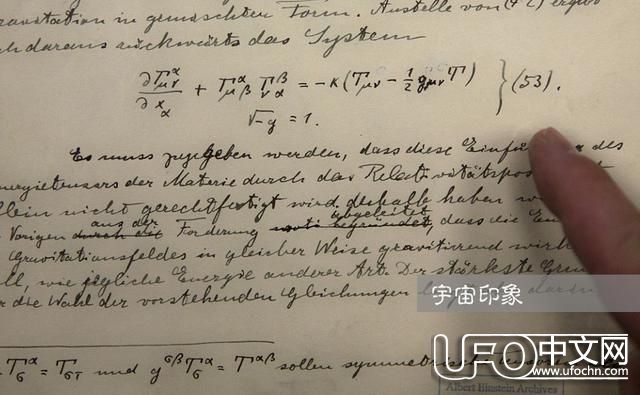 in gemischten Form. Anstelle von (42) ergibt
daraus rückwärts das System
∂Γ^α_μν / ∂x_α + Γ^α_μβ Γ^β_να = −κ(T_μν − 1/2 g_μν T) } (53).
√−g = 1.
Es muss zugegeben werden, dass diese Einfüh des
nergietensors der Materie durch das Relativitätspos
llein nicht gerechtfertigt wird; deshalb haben w
Vorigen durch die aus der Forderung abgeleitet, dass die En
Gravitationsfeldes in gleicher Weise gravitierend wirk
ll, wie jegliche Energie anderer Art. Der stärkste Grun
r die Wahl der vorstehenden Gleichungen
宇宙印象
T^α_σ = T_στ und g^σβ T^α_σ = T^αβ sollen symmetrische
UFO中文网
www.ufochn.com
Albert Einstein Archives